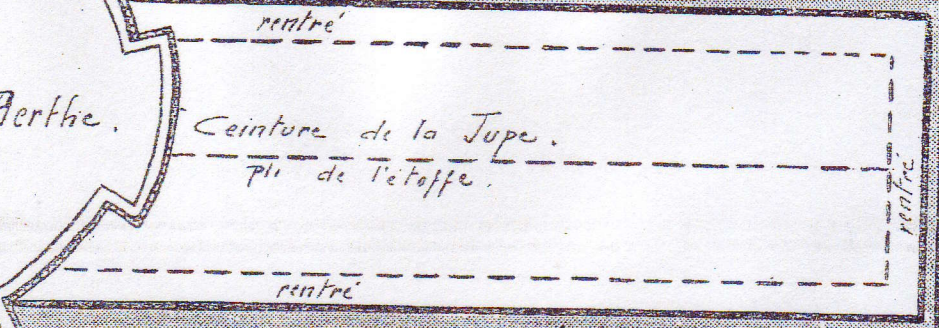 rentré
Berthe.
Ceinture de la Jupe.
pli de l'étoffe.
rentré
rentré